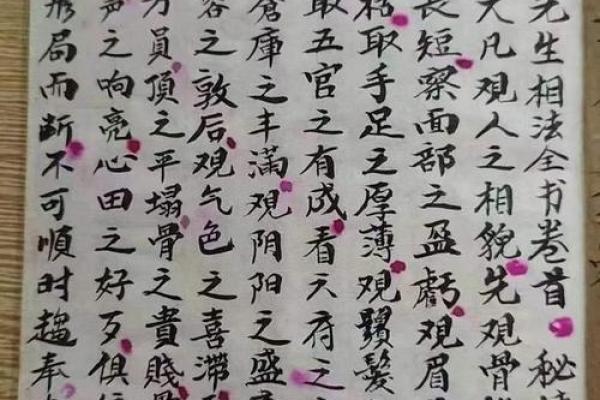 先生相法全书卷首 秘
大凡观人之相貌先观骨
長短察面部之盈虧观眉
枯取手足之厚薄观鬚髮
取五官之有成看六府之
倉庫之丰满观阴阳之盛
容之敦后观气色之喜滞
方員頂之平塌骨之貴賤
声之响亮心田之好歹俱
形局而断不可順时趨奉